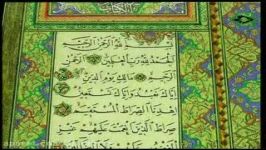 بسم الله الرحمن الرحیم
الحمد لله رب العالمین الرحمن
الرحیم مالک یوم الدین
ایاک نعبد و ایاک نستعین
اهدنا الصراط المستقیم
صراط الذین انعمت علیهم غیر